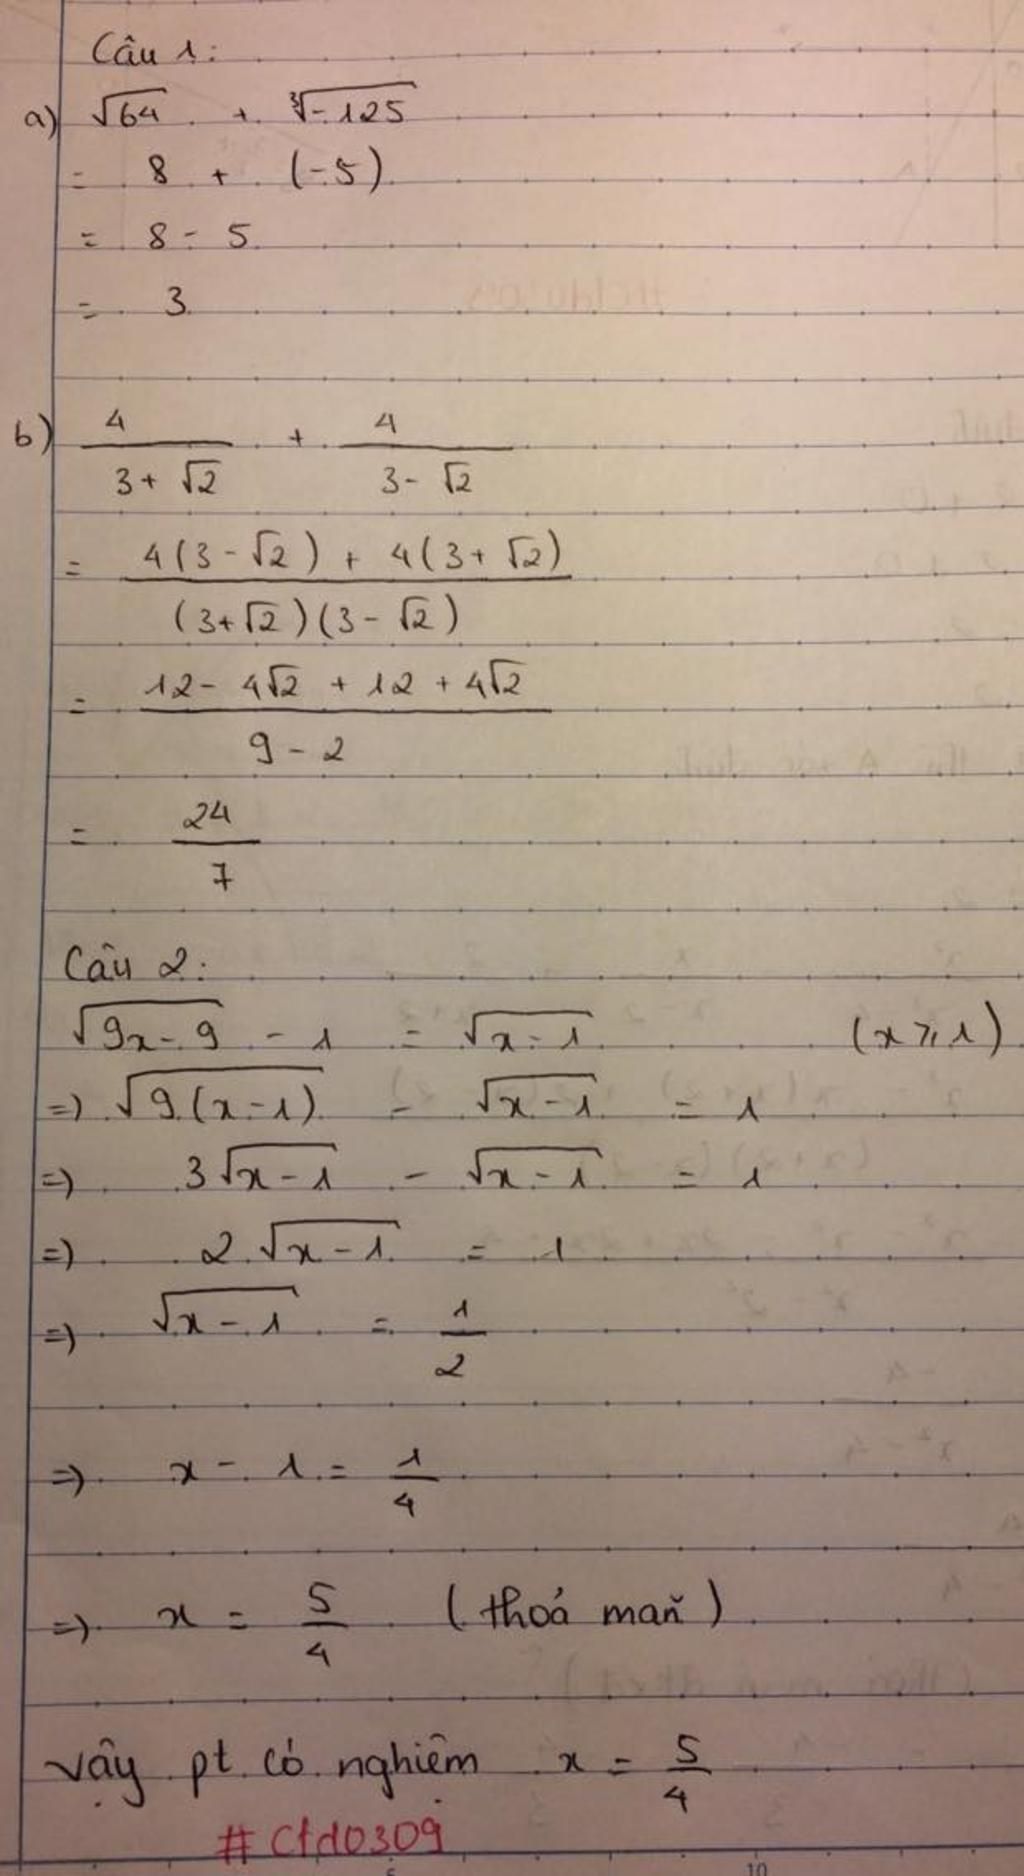 Câu 1:
a) √64 + ∛-125
= 8 + (-5)
= 8 - 5
= 3
b) 4/(3+√2) + 4/(3-√2)
= (4(3-√2) + 4(3+√2))/((3+√2)(3-√2))
= (12 - 4√2 + 12 + 4√2)/(9 - 2)
= 24/7
Câu 2:
√(9x-9) - 1 = √(x-1) (x ⩾ 1)
=) √(9.(x-1)) - √(x-1) = 1
=) 3√(x-1) - √(x-1) = 1
=) 2.√(x-1) = 1
=) √(x-1) = 1/2
=) x - 1 = 1/4
=) x = 5/4 (thoả mãn)
vậy pt có nghiệm x = 5/4
# Ctd0309
10